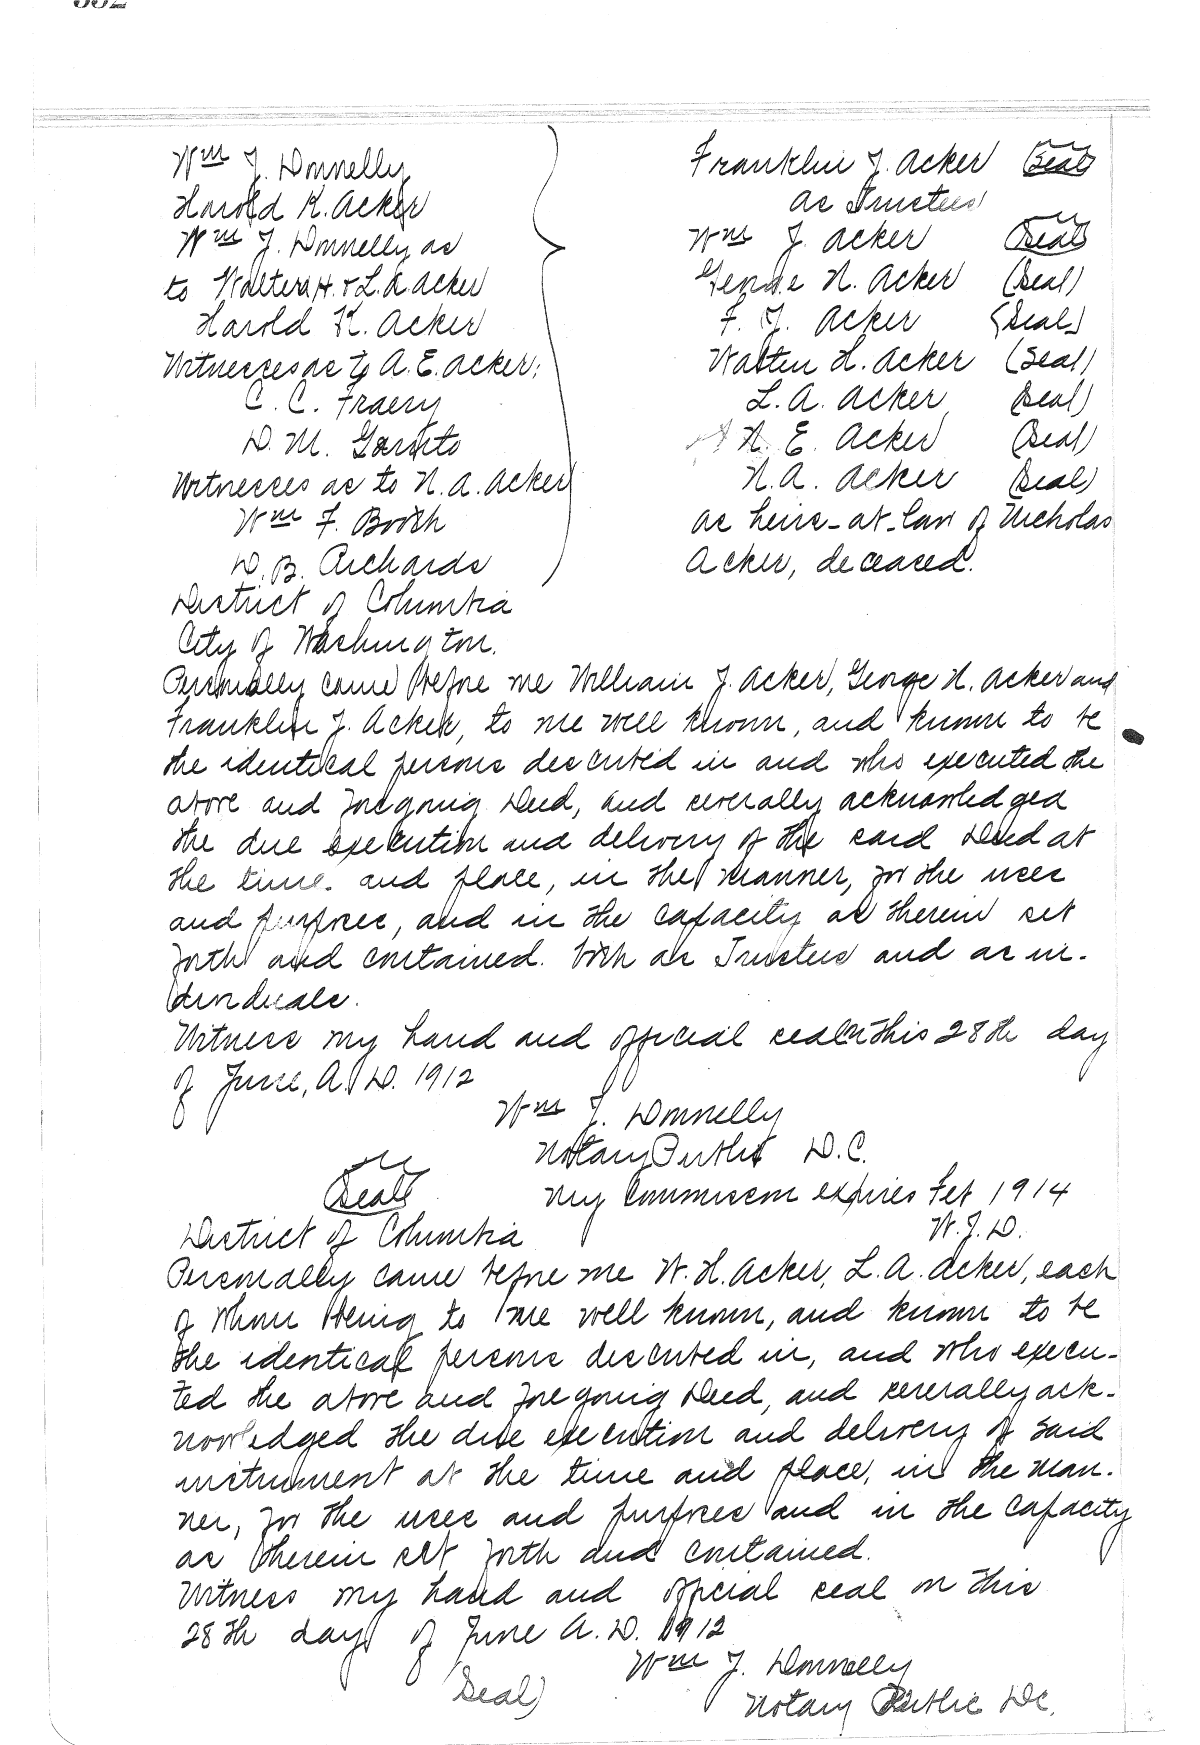 Wm J. Donnelly
Harold K. Acker
Wm J. Donnelly as
to Walter H. & L. A. Acker
Harold K. Acker
Witnesses as to A. E. Acker:
C. C.
D. M.
Witnesses as to N. A. Acker
Wm F. Booth
D. B. Richards
Franklin J. Acker (Seal)
as Trustees
Wm J. Acker (Seal)
George N. Acker (Seal)
F. J. Acker (Seal)
Walter H. Acker (Seal)
L. A. Acker (Seal)
E. Acker (Seal)
N. A. Acker (Seal)
as heirs-at-law of Nicholas
Acker, deceased.
District of Columbia
City of Washington.
Personally came before me William J. Acker, George N. Acker and
Franklin J. Acker, to me well known, and known to be
the identical persons described in and who executed the
above and foregoing Deed, and severally acknowledged
the due execution and delivery of the said Deed at
the time and place, in the manner, for the uses
and purposes, and in the capacity as therein set
forth and contained. both as Trustees and as in-
dividuals.
Witness my hand and official seal on this 28th day
of June, A. D. 1912
Wm J. Donnelly
Notary Public D. C.
(Seal) My Commission expires Feb 1914
W. J. D.
District of Columbia
Personally came before me W. H. Acker, L. A. Acker, each
of whom being to me well known, and known to be
the identical persons described in, and who execu-
ted the above and foregoing Deed, and severally ack-
nowledged the due execution and delivery of said
instrument at the time and place, in the man-
ner, for the uses and purposes and in the capacity
as therein set forth and contained.
Witness my hand and official seal on this
28th day of June A. D. 1912
Wm J. Donnelly
(Seal) Notary Public D.C.